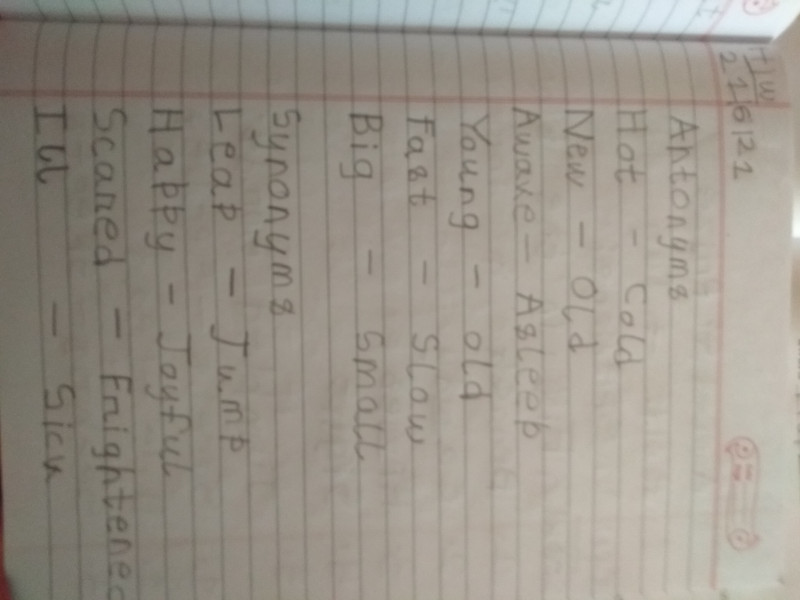 H/W
21/6/21
Antonyms
Hot - Cold
New - Old
Awake - Asleep
Young - old
Fast - Slow
Big - Small
Synonyms
Leap - Jump
Happy - Joyful
Scared - Frightened
Ill - Sick